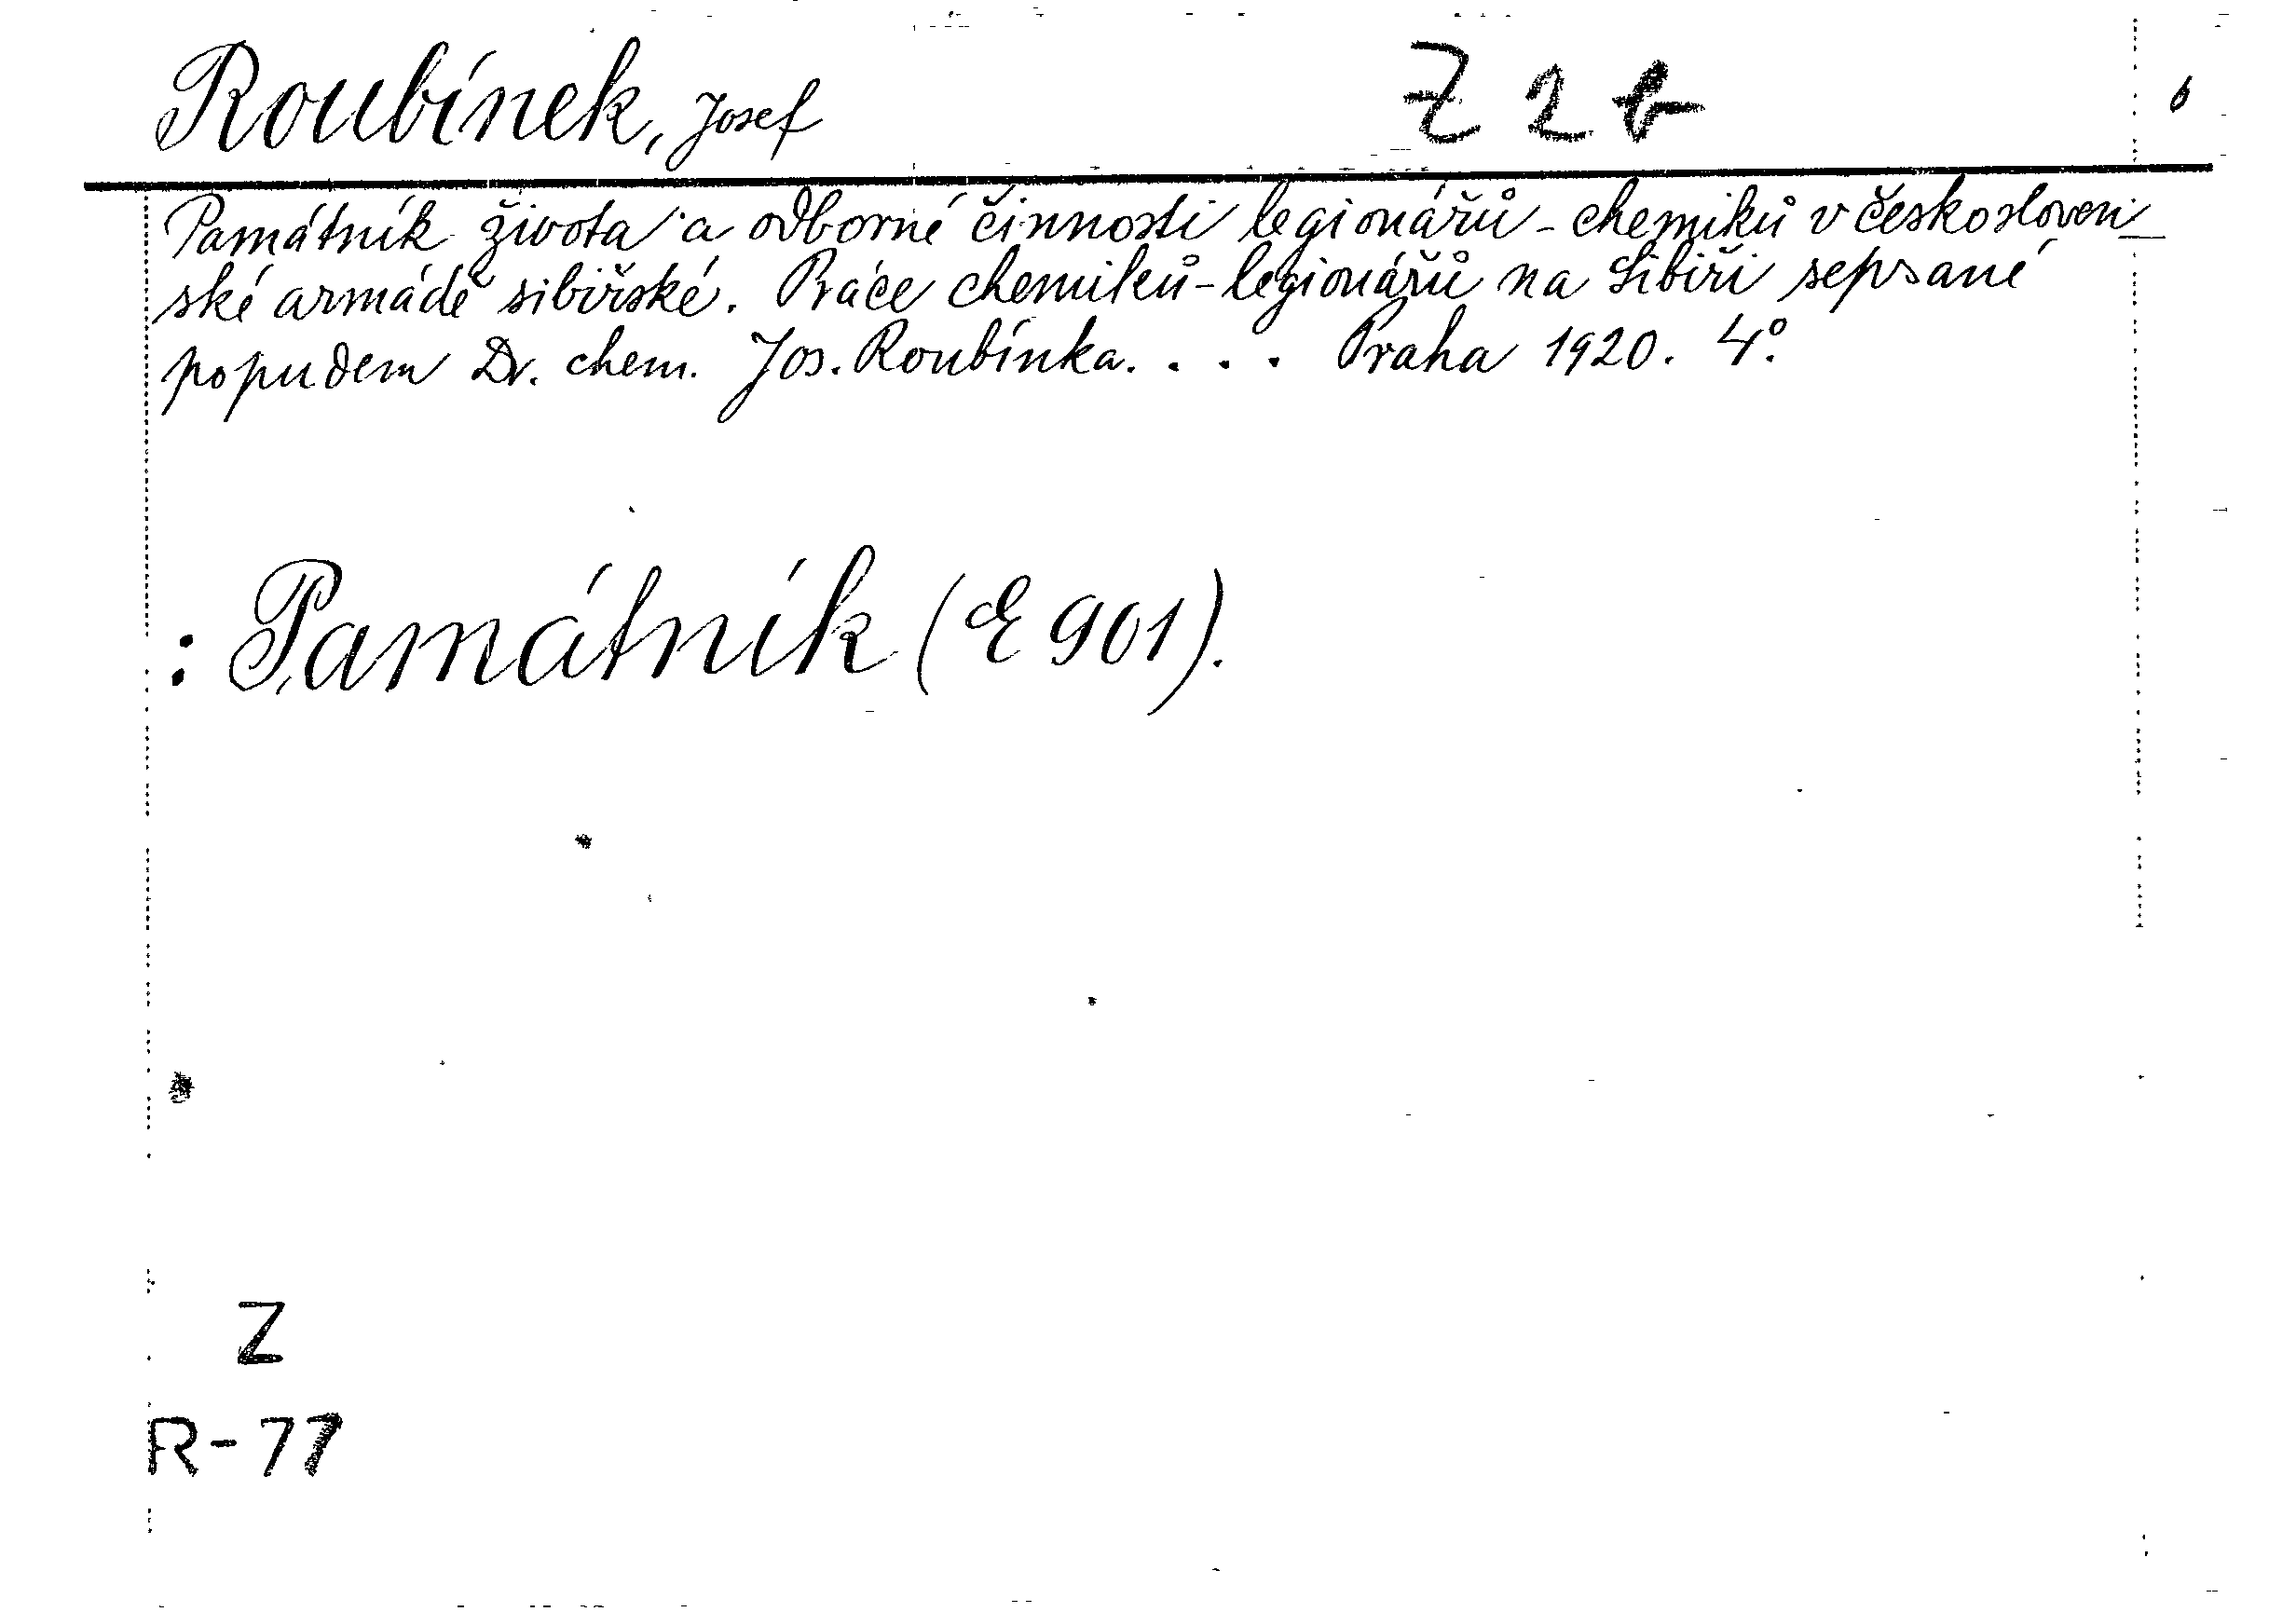 Roubínek, Josef Z 2 b 6
Památník života a odborné činnosti legionářů-chemiků v českosloven-
ské armádě sibiřské. Práce chemiků-legionářů na Sibiři sepsané
popudem Dr. chem. Jos. Roubínka. . . . Praha 1920. 4°.
: Památník (E 901).
Z
R-77